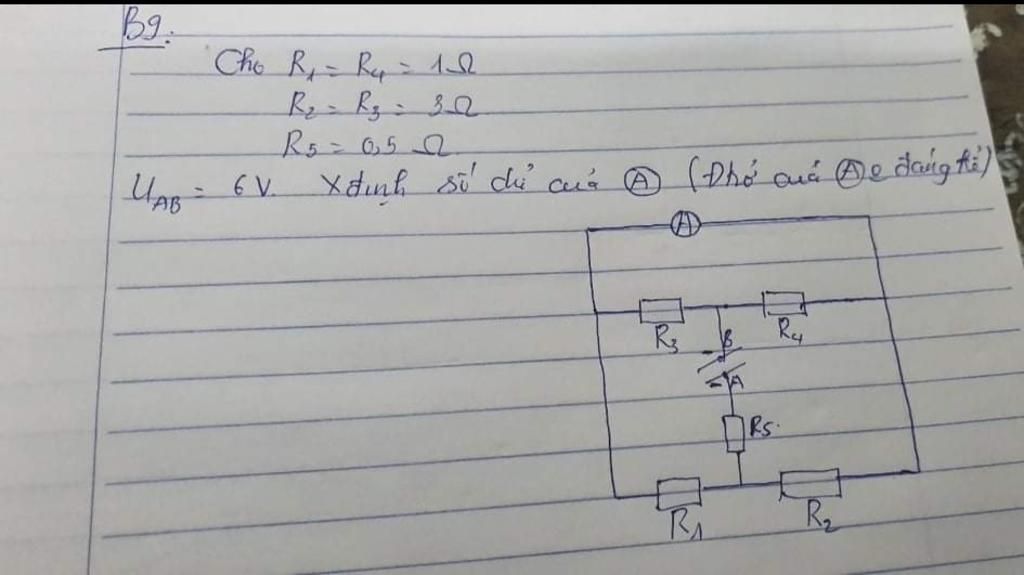 B9:
Cho R₁ = R₄ = 1Ω
R₂ = R₃ = 3Ω
R₅ = 0,5 Ω
U_AB = 6V. Xđịnh số chỉ của Ⓐ (Đtrở của Ⓐ đáng kể)
A
R₃
R₄
B
A
R₅.
R₁
R₂